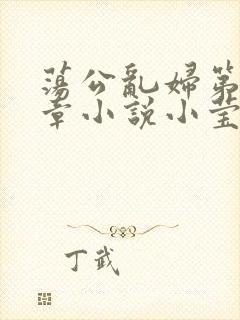 蕩公亂婦第
章小說小莹
丁武